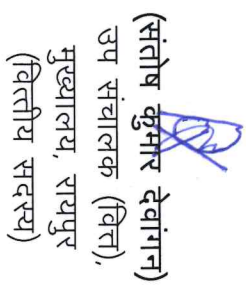 (संतोष कुमार देवांगन)
उप संचालक (वित्त),
मुख्यालय, रायपुर
(वित्तीय सदस्य)